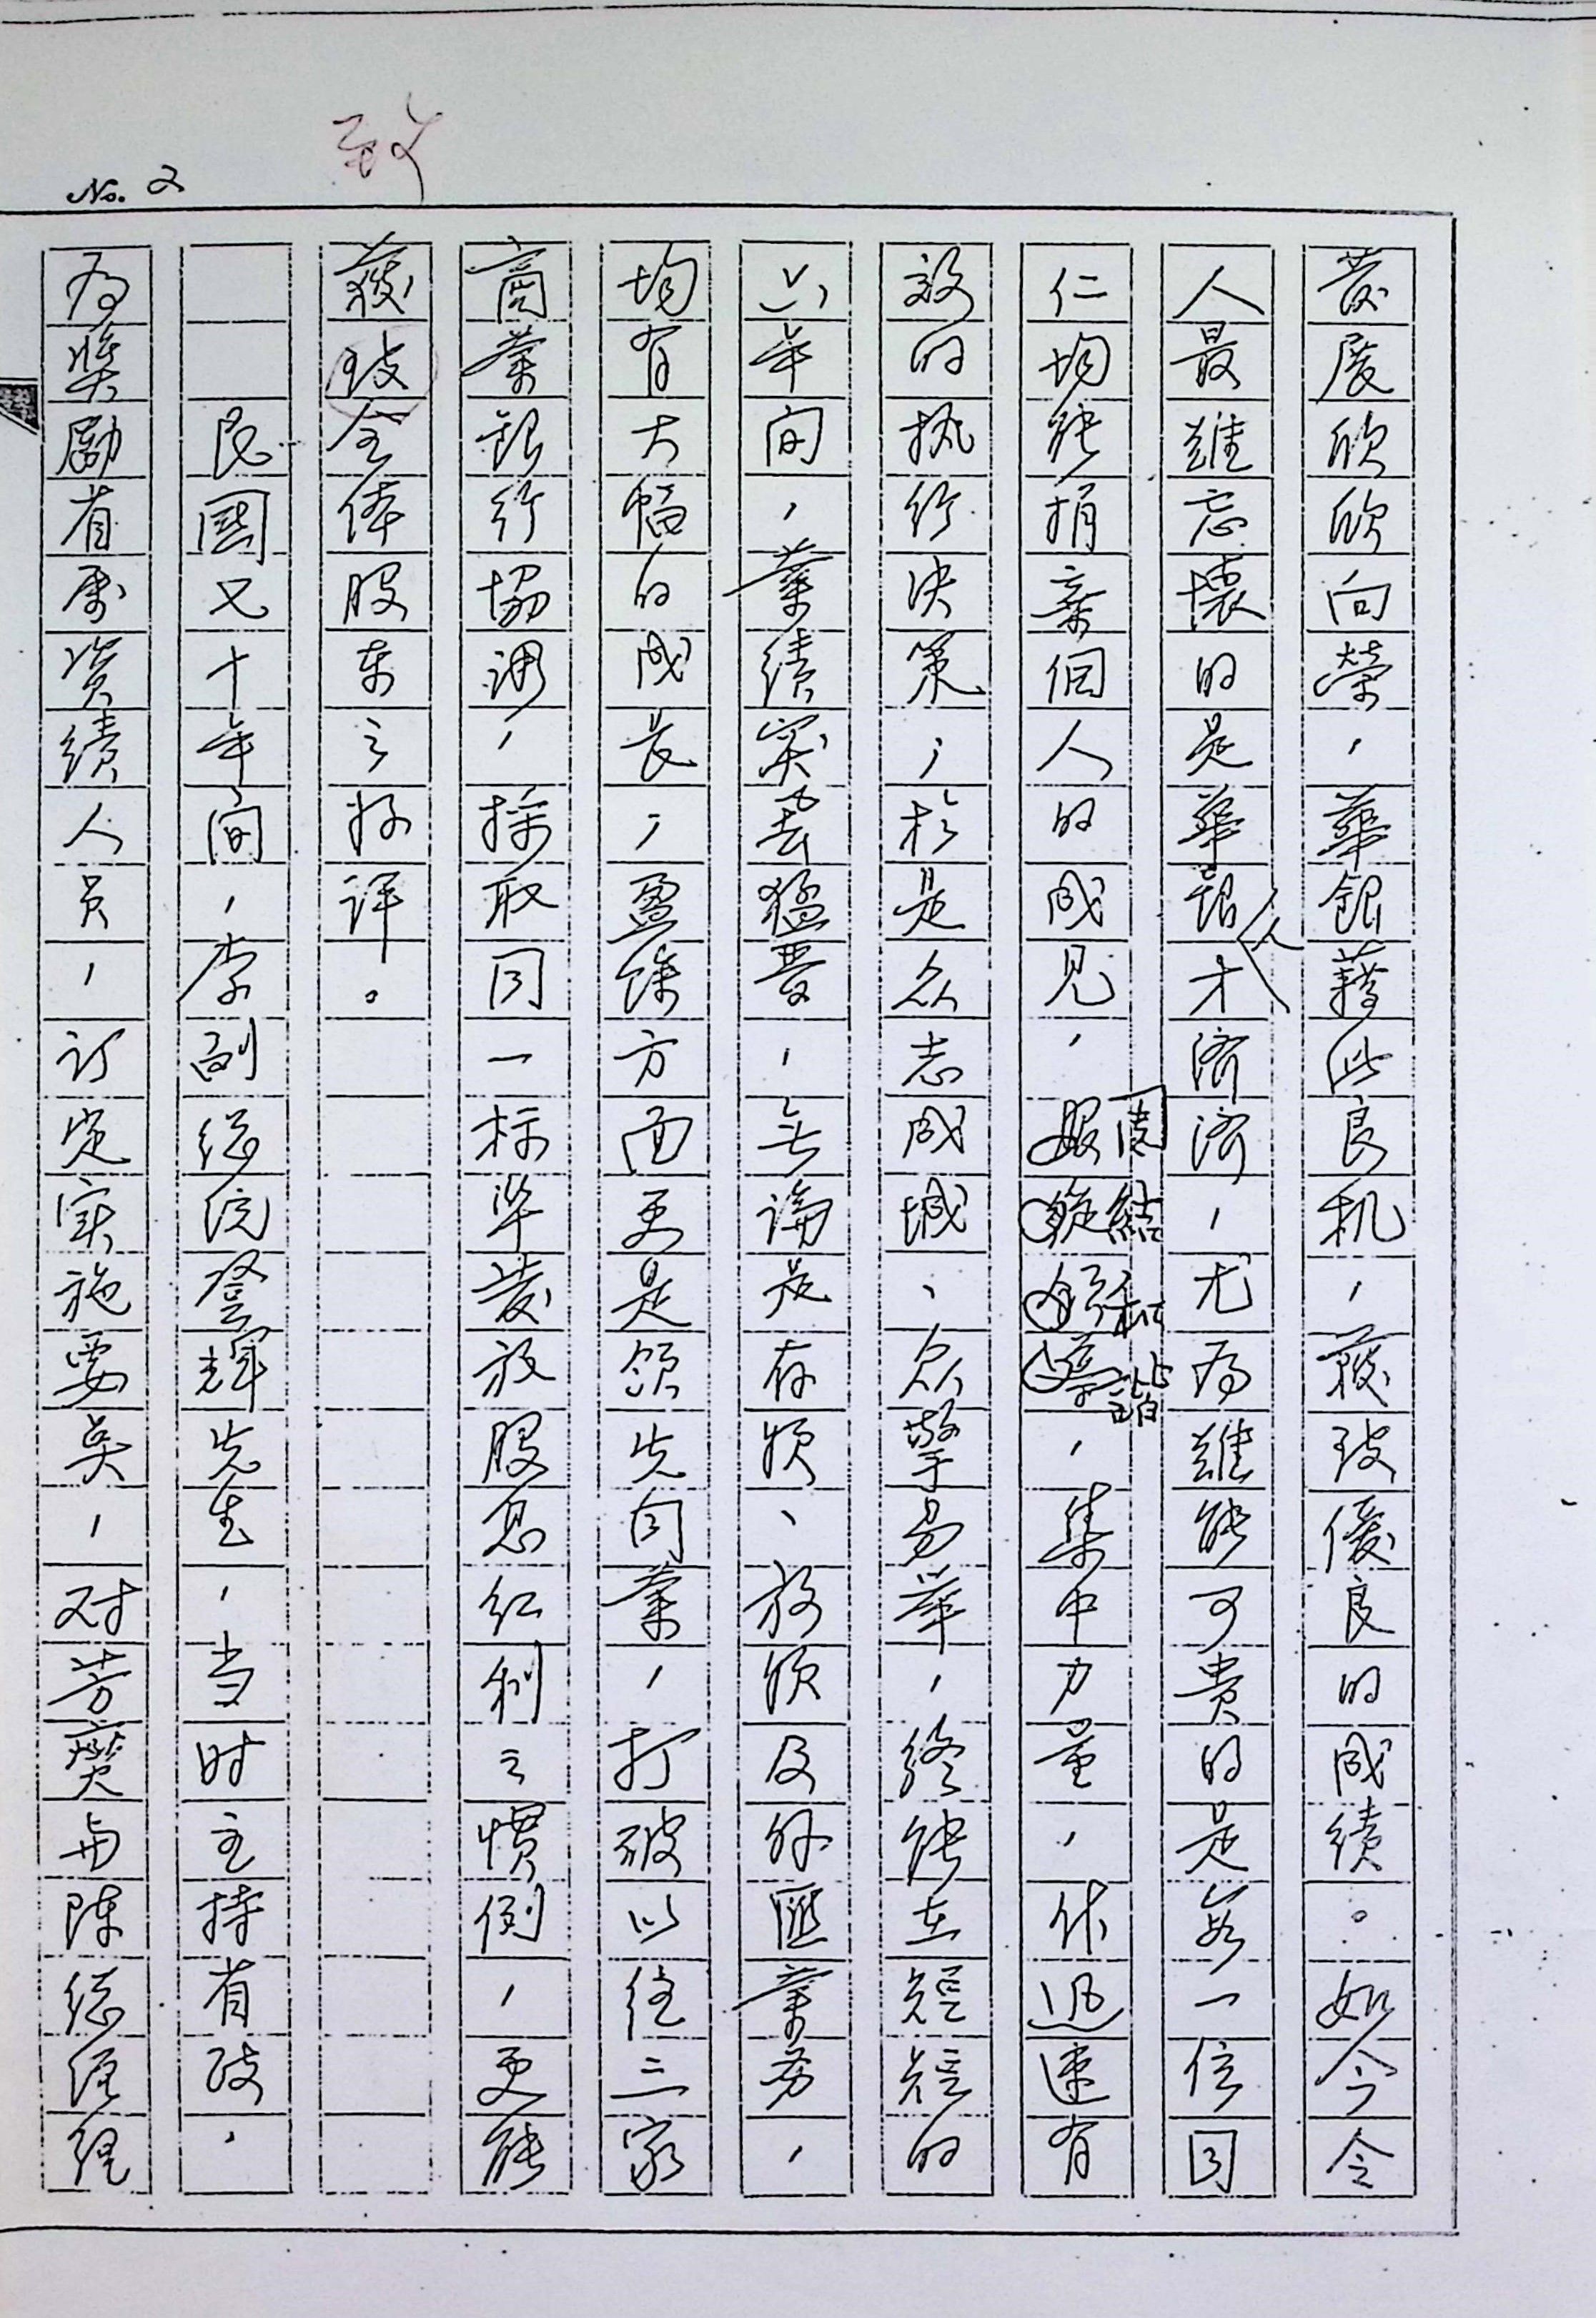 No. 2
致
發展欣欣向榮，華銀藉此良机，獲致優良的成績。如今令
人最難忘懷的是華銀人才濟濟，尤為難能可貴的是每一位同
仁均能捐棄個人的成見，團結和諧，集中力量，作迅速有
效的執行決策，於是众志成城、眾擎易舉，終能在短短的
六年間，業績突飛猛晉，無論是存款、放款及外匯業务，
均有大幅的成長，盈餘方面更是領先同業，打破以往三家
商業銀行協調，採取同一标準發放股息紅利之慣例，更能
獲致全体股東之好評。
民國七十年間，李副總統登輝先生，当时主持省政，
為奨勵省屬資績人員，訂定实施要点，对芳燠与陳總經理